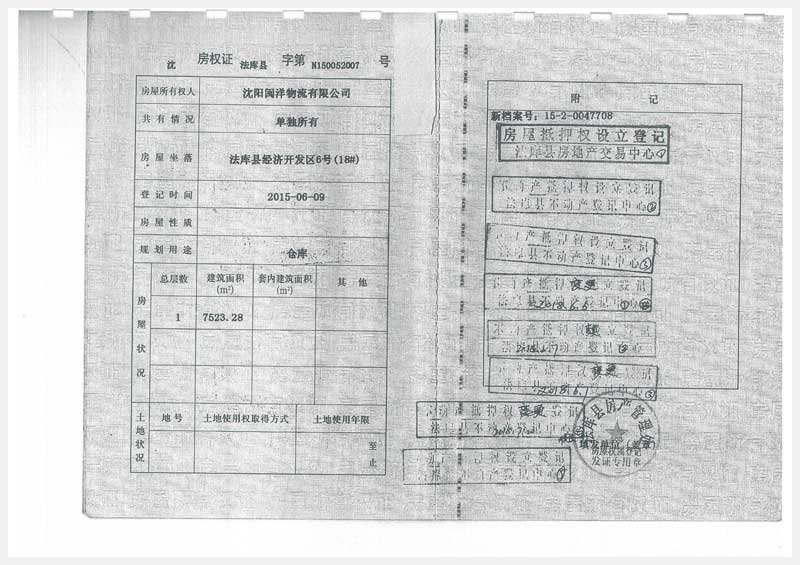 沈 房权证 法库县 字第 N150052007 号
房屋所有权人 沈阳闽洋物流有限公司
共有情况 单独所有
房屋坐落 法库县经济开发区6号(18#)
登记时间 2015-06-09
房屋性质
规划用途 仓库
房屋状况
总层数 建筑面积(m²) 套内建筑面积(m²) 其他
1 7523.28
土地状况
地号 土地使用权取得方式 土地使用年限
至
止
附 记
新档案号: 15-2-0047708
房屋抵押权设立登记
法库县房地产交易中心
不动产抵押权设立登记
法库县不动产登记中心
不动产抵押权设立登记
法库县不动产登记中心
不动产抵押权变更登记
法库县不动产登记中心
不动产抵押权
法库县不动产登记中心
不动产抵押权变更登记
法库县不动产登记中心
不动产抵押权变更登记
法库县不动产登记中心
不动产抵押权设立登记
法库县不动产登记中心
法库县房产管理
填发单位(盖章)
房屋权属登记
发证专用章